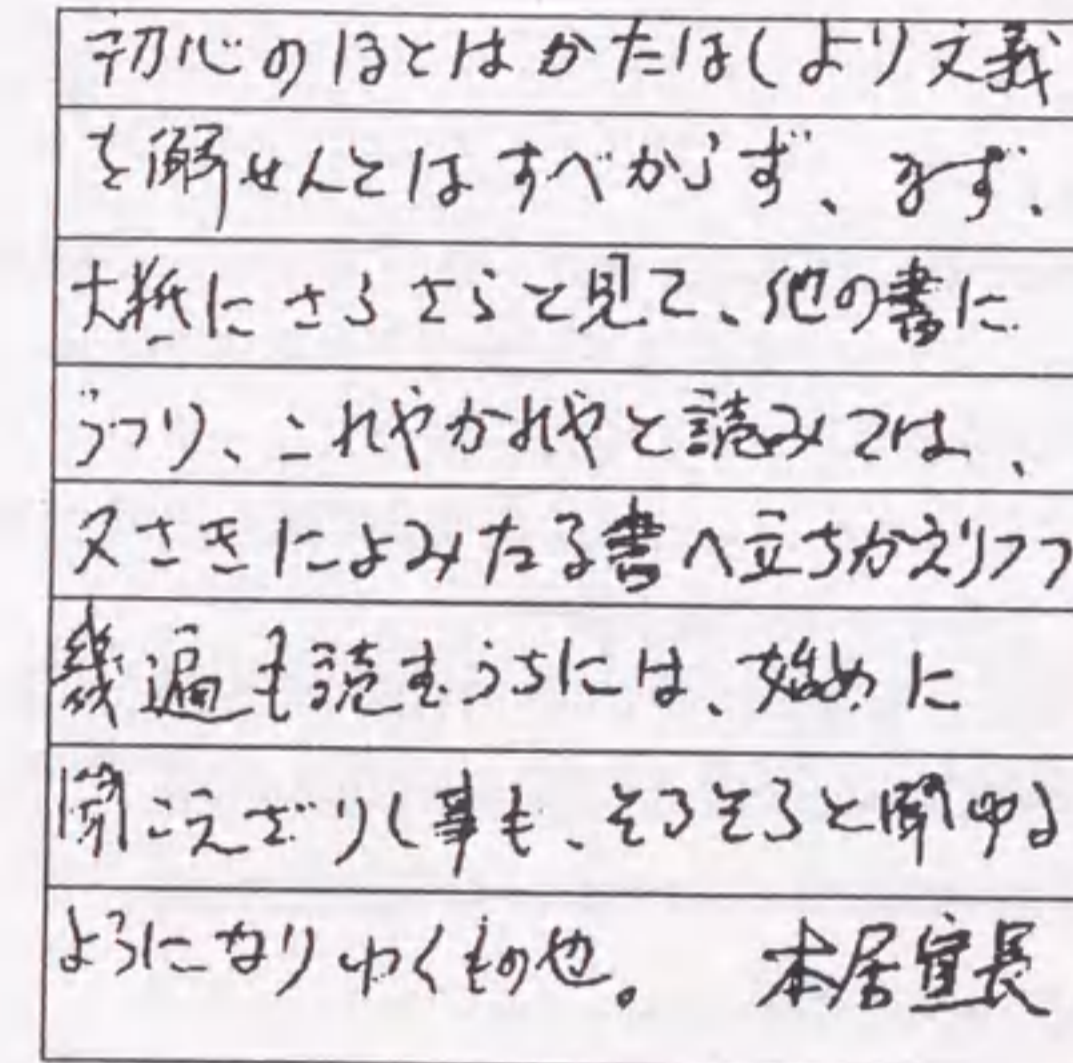 初心のほとはかたはしより文義
を解せんとはすべからず、まず、
大抵にさらさらと見て、他の書に
うつり、これやかれやと読みては、
又さきによみたる書へ立ちかえりつつ
幾遍も読むうちには、始めに
聞こえざりし事も、そろそろと聞ゆる
ようになりゆくもの也。 本居宣長